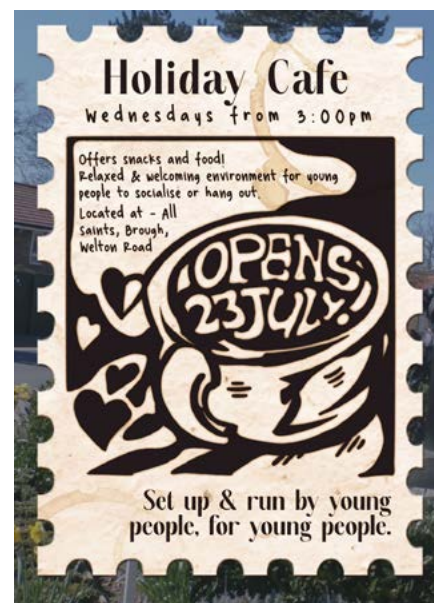 Holiday Cafe
Wednesdays from 3:00pm
Offers snacks and food!
Relaxed & welcoming environment for young
people to socialise or hang out.
Located at - All
Saints, Brough,
Welton Road
¡OPENS
23 JULY!
Set up & run by young
people, for young people.